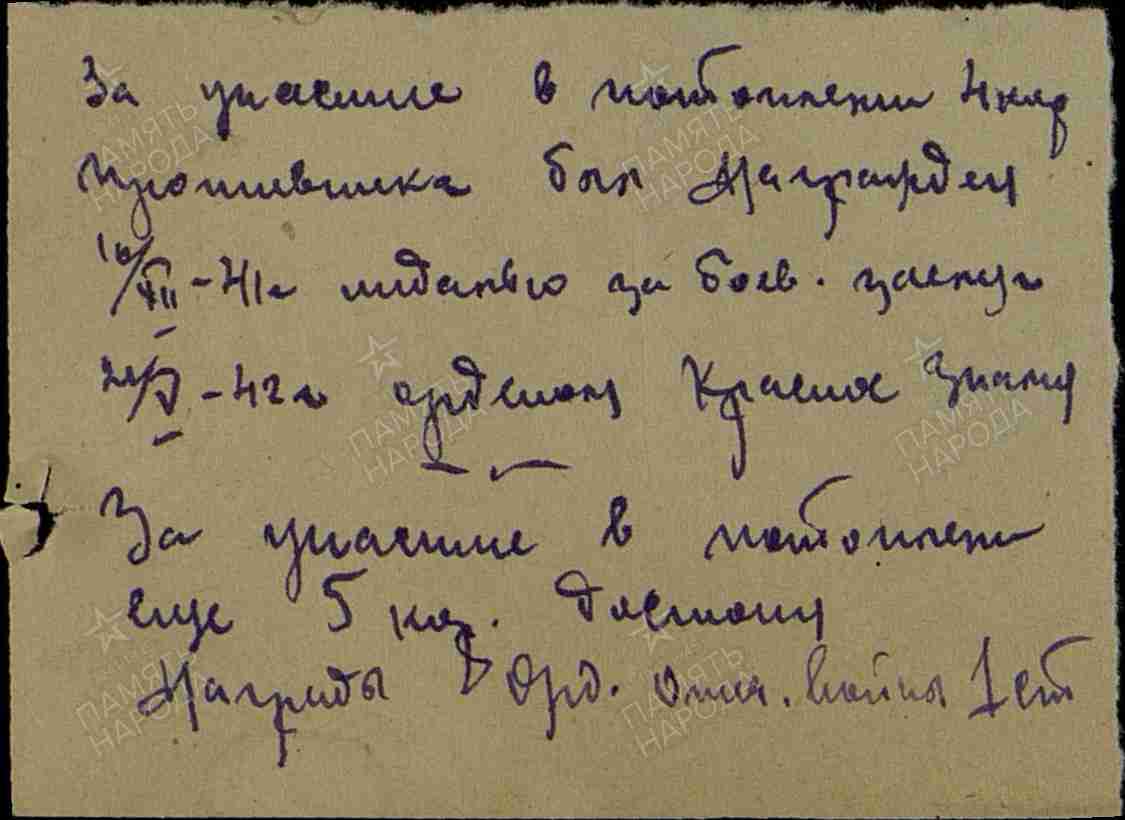 За участие в потоплени 4 кор
противника был награжден
16/XII-41г медалью за боев. заслуги
/V-42г орденом Красное Знамя
За участие в потоплени
еще 5 кор. достоин
Награды Орд. отеч. Войны 1 ст
ПАМЯТЬ НАРОДА
ПАМЯТЬ НАРОДА
ПАМЯТЬ НАРОДА
ПАМЯТЬ НАРОДА
ПАМЯТЬ НАРОДА
ПАМЯТЬ НАРОДА